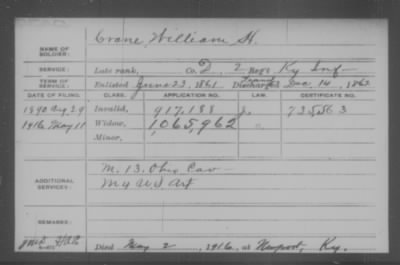 Crane, William H.
NAME OF SOLDIER:
SERVICE: Late rank, Co. D, 2 Reg't Ky Inf
TERM OF SERVICE: Enlisted June 23, 1861 Discharged Dec. 14, 1862
DATE OF FILING. CLASS. APPLICATION NO. LAW. CERTIFICATE NO.
1890 Aug. 29 Invalid, 917,188
1916 May 11 Widow, 1,065,962
Minor,
ADDITIONAL SERVICES: M. 13. Ohio Cav
M 4 U S Art
REMARKS:
Died May 2, 1916, at Newport, Ky.